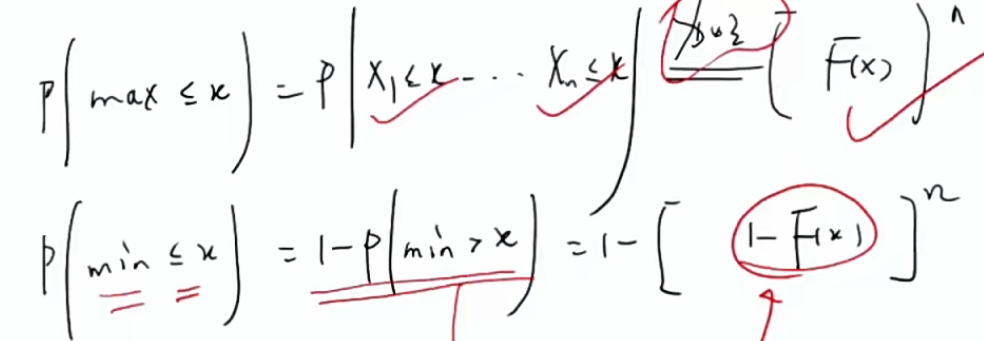 P(max ≤ x) = P(X₁ ≤ x ... Xₙ ≤ x) = (F(x))ⁿ
P(min ≤ x) = 1 - P(min > x) = 1 - [1 - F(x)]ⁿ